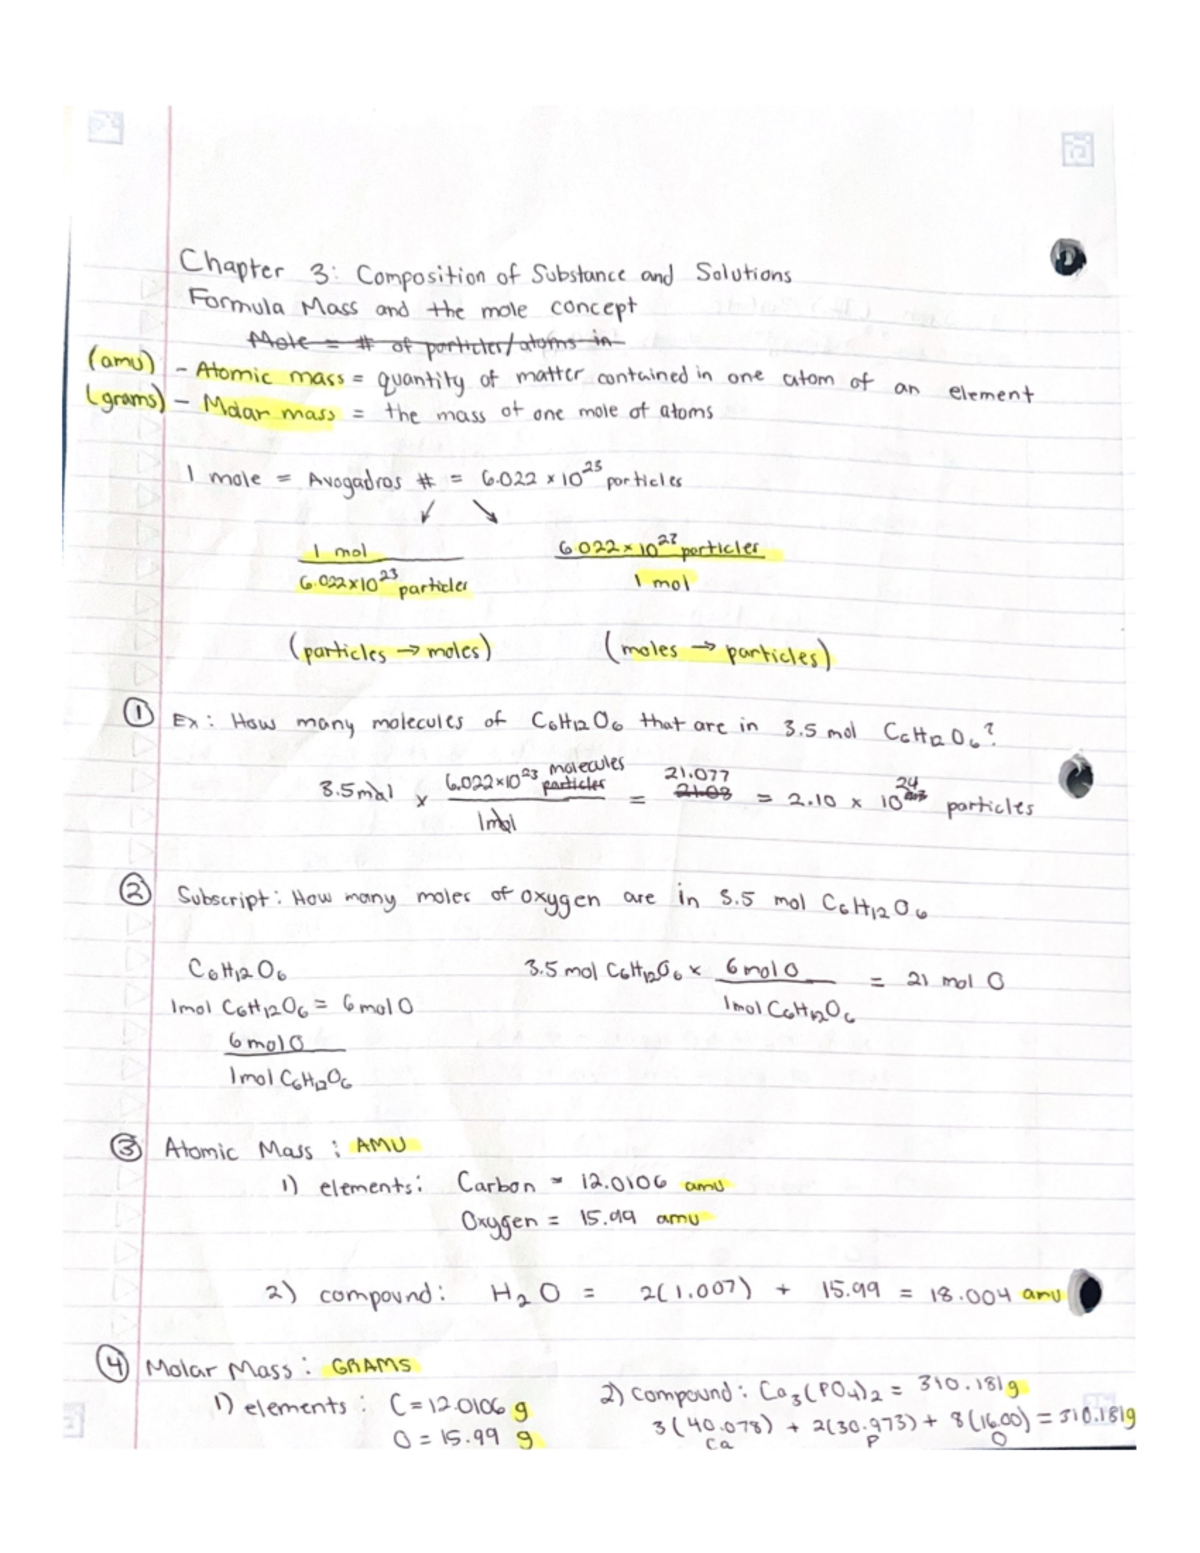 Chapter 3: Composition of Substance and Solutions
Formula Mass and the mole concept
Mole = # of particles/atoms in
(amu) - Atomic mass = quantity of matter contained in one atom of an element
(grams) - Molar mass = the mass of one mole of atoms
1 mole = Avogadros # = 6.022 × 10^23 particles
↙ ↘
1 mol
6.022×10^23 particles
6.022×10^23 particles
1 mol
(particles → moles) (moles → particles)
① Ex: How many molecules of C6H12O6 that are in 3.5 mol C6H12O6?
3.5 mol × 6.022×10^23 molecules particles / 1 mol = 21.077 21.08 = 2.10 × 10^24 particles
② Subscript: How many moles of oxygen are in 3.5 mol C6H12O6
C6H12O6
1mol C6H12O6 = 6 mol O
6 mol O
1mol C6H12O6
3.5 mol C6H12O6 × 6 mol O / 1mol C6H12O6 = 21 mol O
③ Atomic Mass: AMU
1) elements: Carbon = 12.0106 amu
Oxygen = 15.99 amu
2) compound: H2O = 2(1.007) + 15.99 = 18.004 amu
④ Molar Mass: GRAMS
1) elements: C = 12.0106 g
O = 15.99 g
2) compound: Ca3(PO4)2 = 310.181g
3(40.078) + 2(30.973) + 8(16.00) = 310.181g
Ca P O